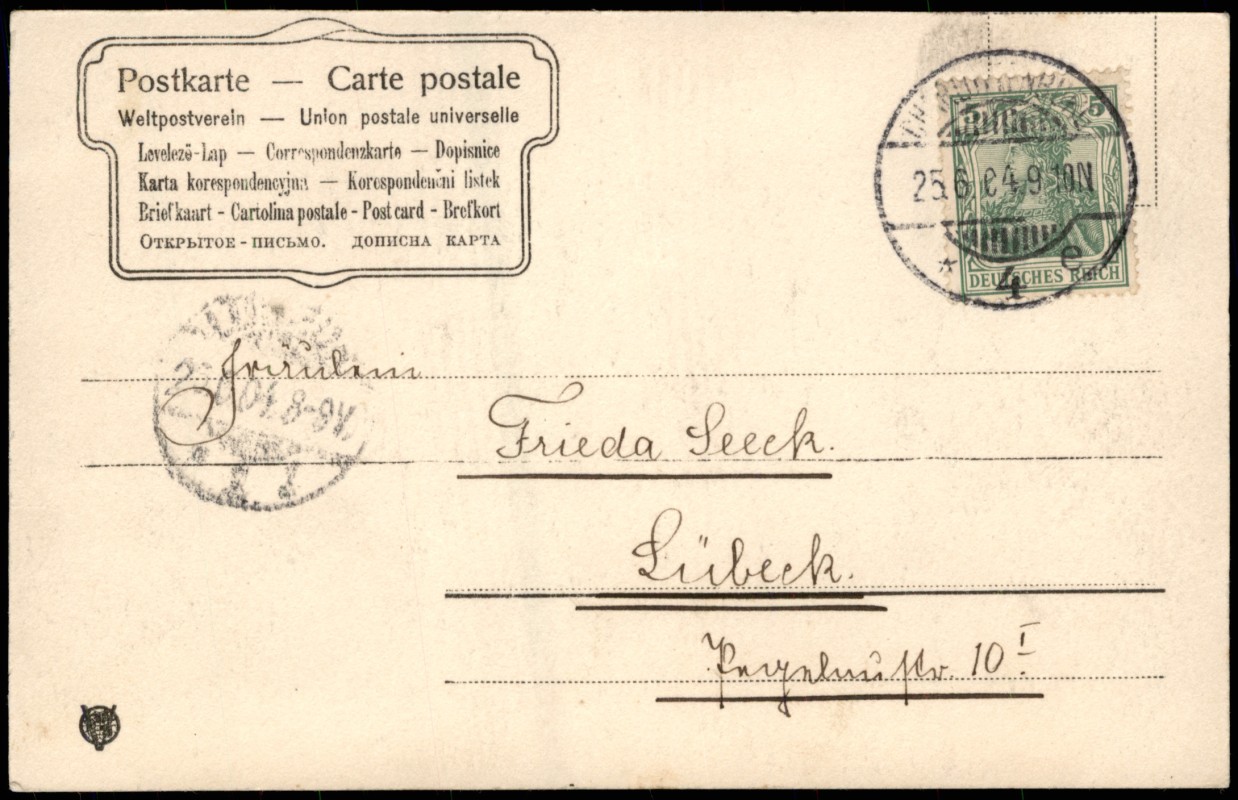 Postkarte — Carte postale
Weltpostverein — Union postale universelle
Levelezö-Lap — Correspondenzkarte — Dopisnice
Karta korespondencyjna — Korespondenčni listek
Briefkaart - Cartolina postale - Post card - Brefkort
Открытое - письмо. дописна карта
5
25.6.04.9-10N
* 4 e
DEUTSCHES REICH
Fräulein
8-9V
Frieda Seeck.
Lübeck.
10 I